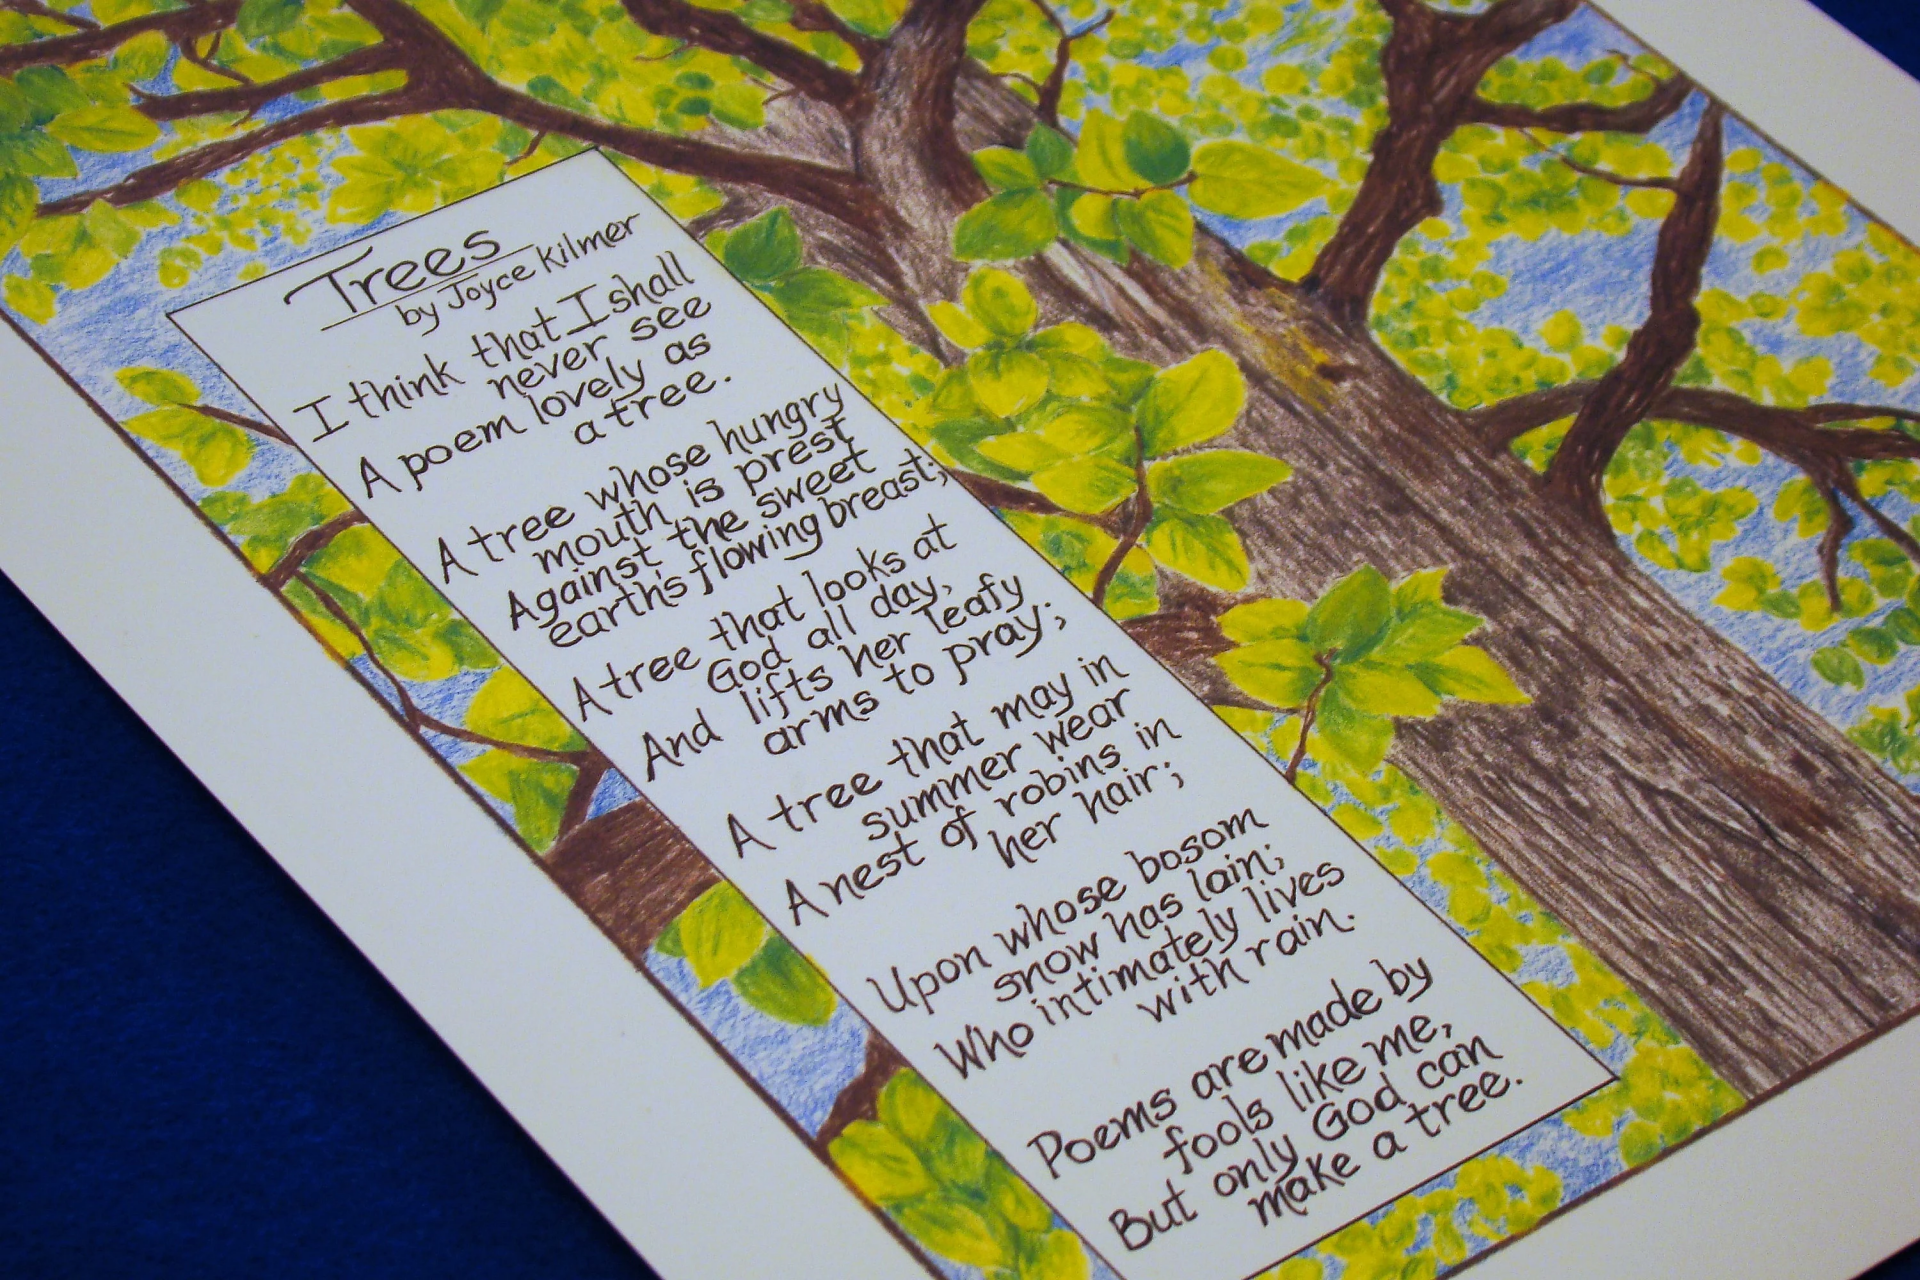 Trees
by Joyce Kilmer
I think that I shall
never see
A poem lovely as
a tree.
A tree whose hungry
mouth is prest
Against the sweet
earth's flowing breast;
A tree that looks at
God all day,
And lifts her leafy
arms to pray;
A tree that may in
summer wear
A nest of robins in
her hair;
Upon whose bosom
snow has lain;
Who intimately lives
with rain.
Poems are made by
fools like me,
But only God can
make a tree.